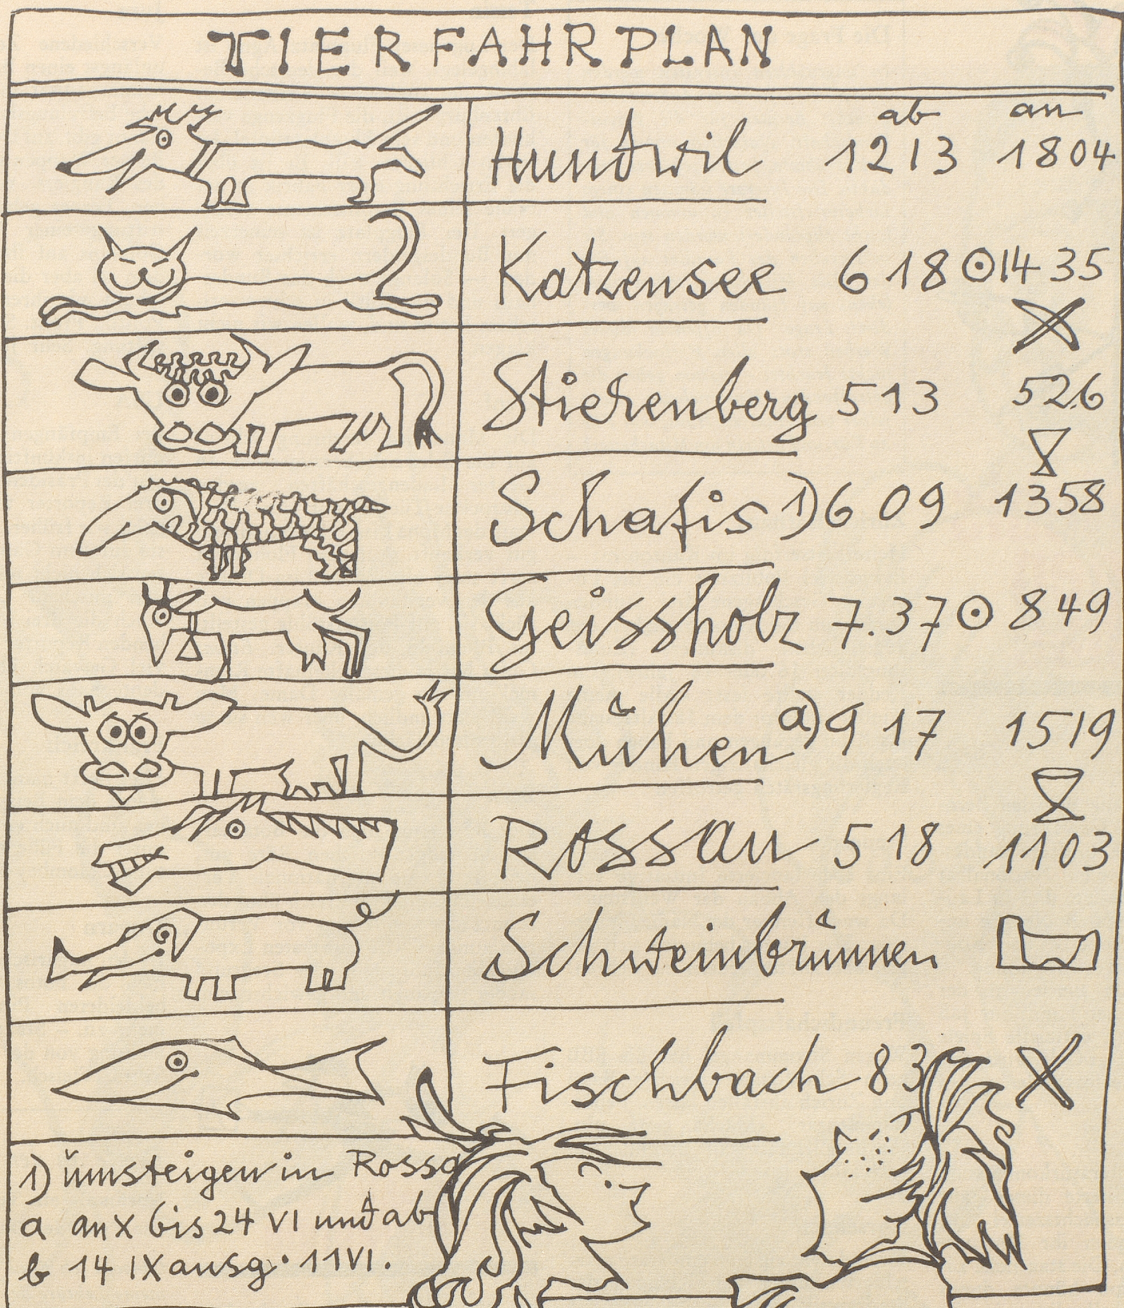 TIERFAHRPLAN
ab an
Hundwil 12 13 18 04
Katzensee 6 18 14 35
Stierenberg 5 13 526
Schafis 1) 6 09 1358
Geissholz 7.37 8 49
Mühen a) 9 17 1519
Rossau 5 18 1103
Schweinbrünnen
Fischbach 83
1) umsteigen in Rossa
a an X bis 24 VI und ab
b 14 IX ausg. 11 VI.